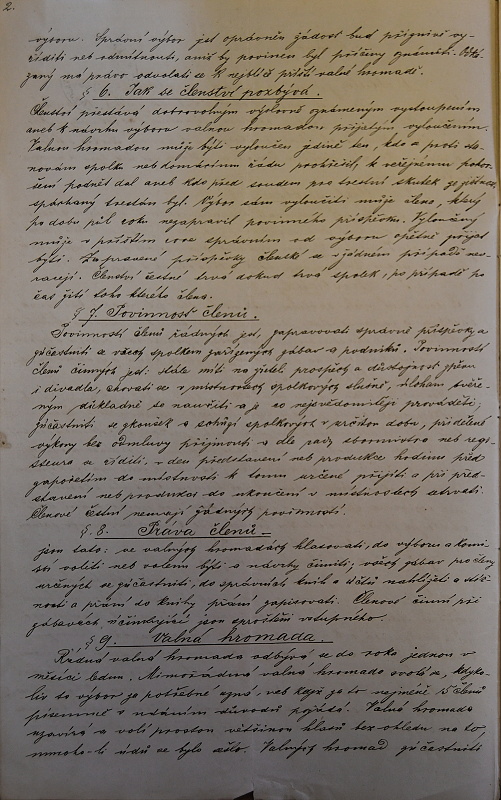 2.
výboru. Správní výbor jest oprávněn žádost buď příznivě vy-
říditi neb odmítnouti, aniž by povinen byl příčiny oznámiti. Odká-
zaný má právo odvolati se k nejbliž příští valné hromadě.
§ 6. Jak se členství pozbývá.
Členství přestává dobrovolným výborem oznámeným vystoupením
aneb k návrhu výboru valnou hromadou přijatým vyloučením.
Valnou hromadou může býti vyloučen jedině ten, kdo proti sta-
novám spolku neb domácímu řádu prohřešil, k veřejnému pohor-
šení podnět dal aneb kdo před soudem pro trestní skutek ze zištnosti
spáchaný trestán byl. Výbor sám vyloučiti může člena, který
po dobu půl roku nezapravil povinného příspěvku. Vyloučený
může v příštím roce správním od výboru opětně přijat
býti. Zapravené příspěvky členské se v žádném případě nev-
racejí. Členství čestné trvá dokud trvá spolek, po případě po
čas žití toho kterého člena.
§ 7. Povinnost členů.
Povinností členů řádných jest, zapravovati správně příspěvky a
účastniti se všech spolkem zařízených zábav a podniků. Povinností
členů činných jest: stále míti na zřeteli prospěch a důstojnost zpěvu
i divadla, chovati se v místnostech spolkových slušně, úloham svěře-
ným důkladně se naučiti a je co nejsvědomitěji prováděti;
zúčastniti se zkoušek a schůzí spolkových v určitou dobu, přidělené
výkony bez odmluvy přijmouti a dle rady sbormistra neb regi-
sseura se říditi, v den představení neb produkce hodinu před
započetím do místnosti k tomu určené přijíti a při před-
stavení neb produkci do ukončení v místnostech setrvati.
Členové čestní nemají žádných povinností.
§. 8. Práva členů
jsou tato: ve valných hromadách hlasovati, do výboru a komi-
sí voliti neb voleni býti a návrhy činiti; všech zábav pro členy
určených se zúčastniti, do správních knih a účtů nahlížeti a stíž-
nosti a přání do knihy přání zapisovati. Členové činní při
zábavách účinkující jsou sproštěni vstupného.
§ 9. Valná hromada.
Řádná valná hromada odbývá se do roka jednou v
měsíci lednu. Mimořádnou valnou hromadu svolá se, kdyko-
liv to výbor za potřebné uzná, neb když za to nejméně 15 členů
písemně s udáním důvodů požádá. Valná hromada
uzavírá a volí prostou většinou hlasů bez ohledu na to,
mnoho-li údů se bylo sešlo. Valných hromad zúčastniti